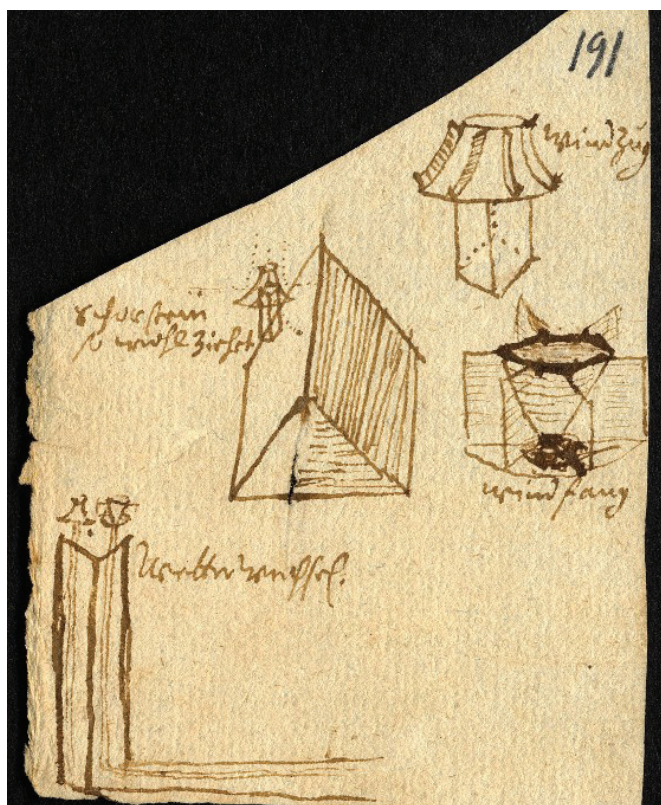 191
Windzug
schorstein
so wohl ziehet
windfang
Wetterwechsel.